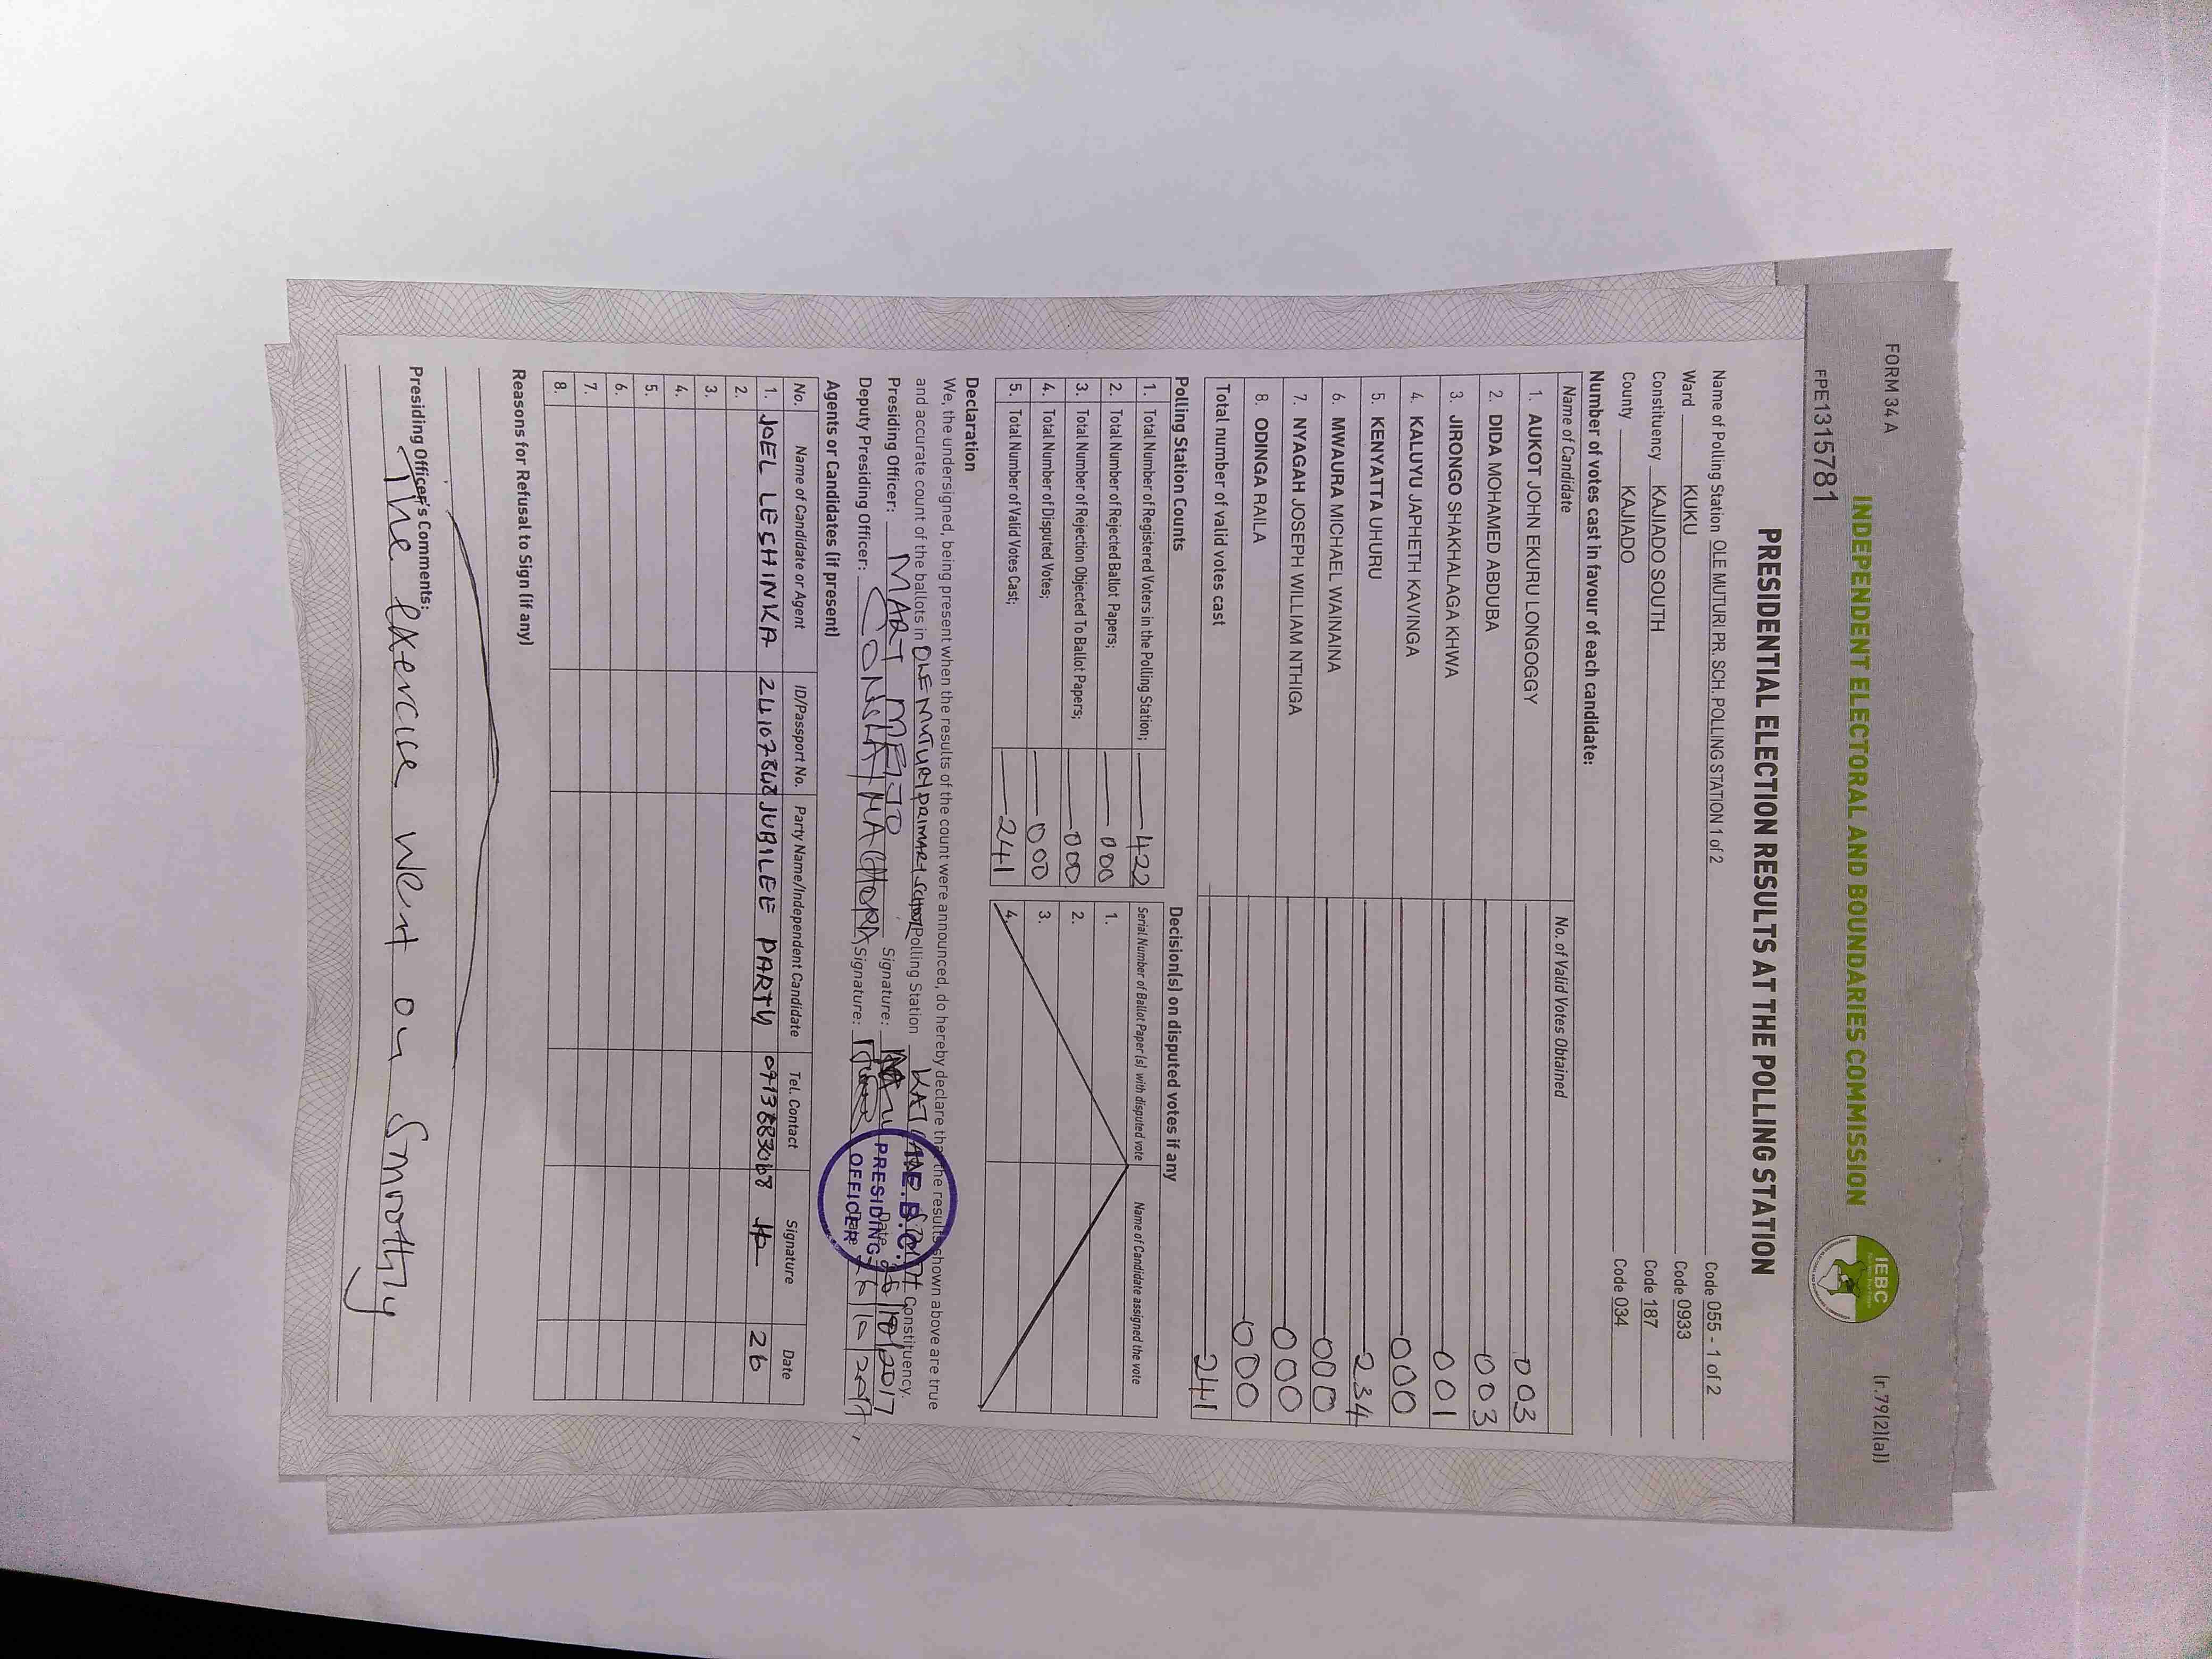 FORM 34 A
(r.79(2)(a))
INDEPENDENT ELECTORAL AND BOUNDARIES COMMISSION
IEBC
FPE1315781
PRESIDENTIAL ELECTION RESULTS AT THE POLLING STATION
Name of Polling Station OLE MUTURI PR. SCH. POLLING STATION 1 of 2 Code 055 - 1 of 2
Ward KUKU Code 0933
Constituency KAJIADO SOUTH Code 187
County KAJIADO Code 034
Number of votes cast in favour of each candidate:
Name of Candidate No. of Valid Votes Obtained
1. AUKOT JOHN EKURU LONGOGGY 003
2. DIDA MOHAMED ABDUBA 003
3. JIRONGO SHAKHALAGA KHWA 001
4. KALUYU JAPHETH KAVINGA 000
5. KENYATTA UHURU 234
6. MWAURA MICHAEL WAINAINA 000
7. NYAGAH JOSEPH WILLIAM NTHIGA 000
8. ODINGA RAILA 000
Total number of valid votes cast 241
Polling Station Counts
1. Total Number of Registered Voters in the Polling Station; 422
2. Total Number of Rejected Ballot Papers; 000
3. Total Number of Rejection Objected To Ballot Papers; 000
4. Total Number of Disputed Votes; 000
5. Total Number of Valid Votes Cast; 241
Decision(s) on disputed votes if any
Serial Number of Ballot Paper (s) with disputed vote Name of Candidate assigned the vote
1.
2.
3.
4.
Declaration
We, the undersigned, being present when the results of the count were announced, do hereby declare that the results shown above are true
and accurate count of the ballots in OLE MUTURI PRIMARY SCHOOL Polling Station Constituency.
Presiding Officer: MART Signature: Date 26/10/2017
Deputy Presiding Officer: Signature: Date 26/10/2017
I.E.B.C.
PRESIDING
OFFICER
Agents or Candidates (if present)
No. Name of Candidate or Agent ID/Passport No. Party Name/Independent Candidate Tel. Contact Signature Date
1. JOEL LESHINKA JUBILEE PARTY 26
2.
3.
4.
5.
6.
7.
8.
Reasons for Refusal to Sign (if any)
Presiding Officer's Comments:
The exercise went on smoothly